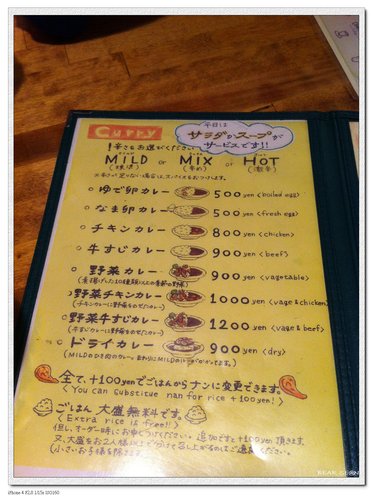 Curry
平日は
サラダかスープが
サービスです!!
!辛さをお選びください!
MILD or MIX or HOT
※辛さが足りない場合は、スパイスをおつけします。
ゆで卵カレー 500yen <boiled egg>
なま卵カレー 500yen <fresh egg>
チキンカレー 800yen <chicken>
牛すじカレー 900yen <beef>
野菜カレー 900yen <vagetable>
野菜チキンカレー 1000yen <vage & chicken>
(チキンカレーに野菜をのせたカレー)
野菜牛すじカレー 1200yen <vage & beef>
(牛すじカレーに野菜をのせたカレー)
ドライカレー 900yen <dry>
全て、+100yenでごはんからナンに変更できます。
<You can substitute nan for rice +100yen!>
ごはん 大盛無料です。
<Extra rice is free!!>
但し、オーダー時にお申しつけください。追加ですと+100yen頂きます
(小さいお子様を除きます)
BEAR SEAN